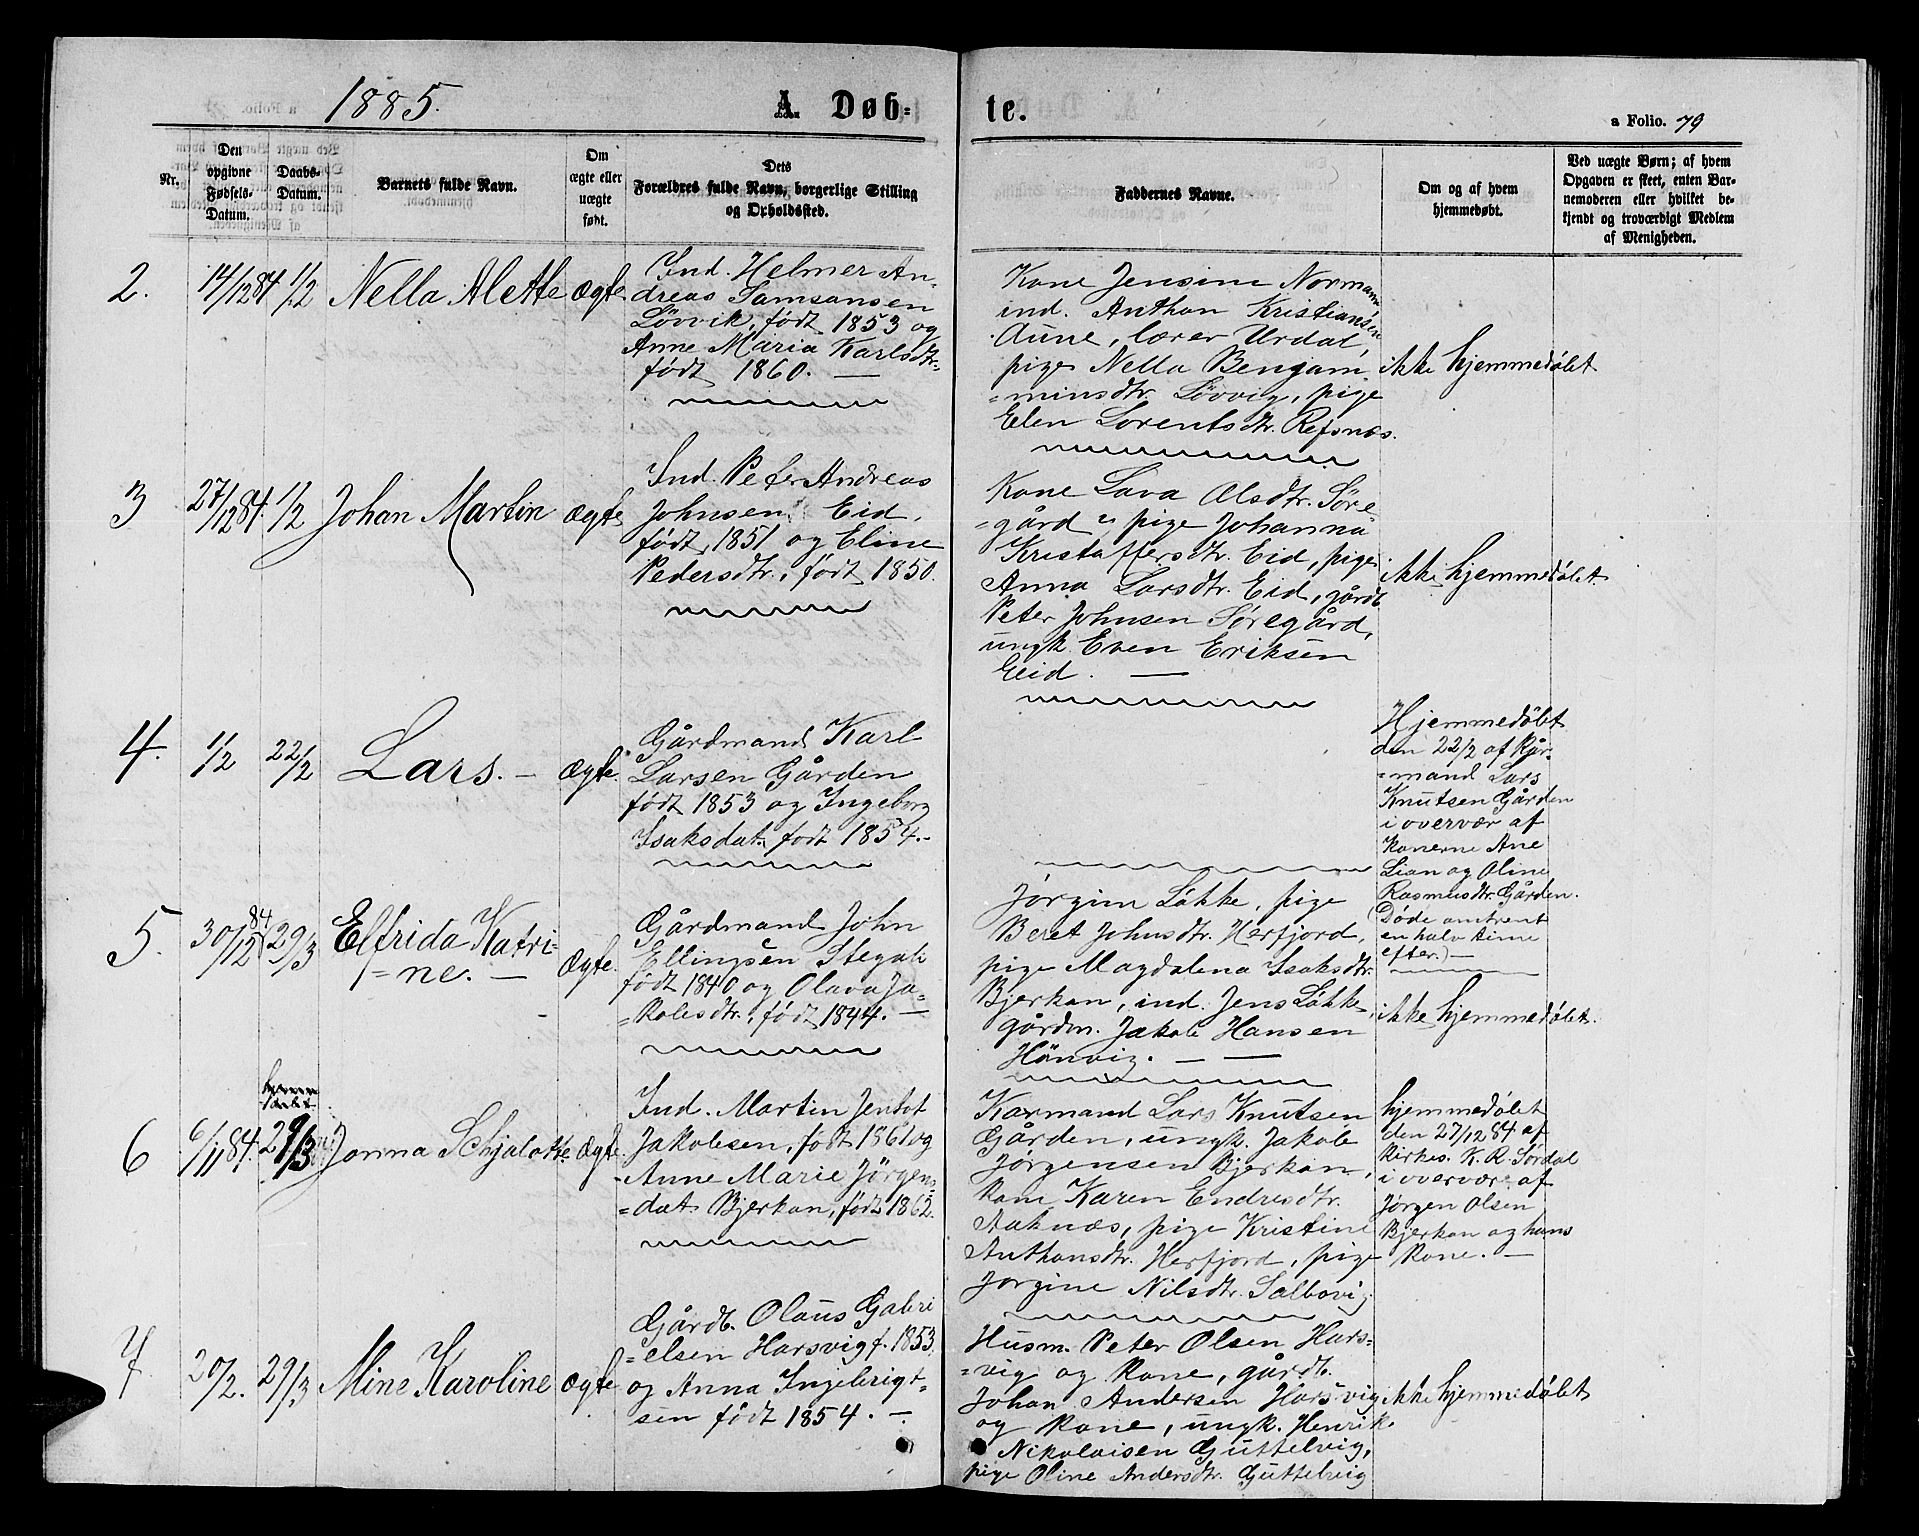 1885.
A. Døb=
te.
a Folio. 79
Nr.
Den
opgivne
Fødsels-
Datum.
Daabs-
Datum.
Barnets fulde Navn.
Om
ægte eller
uægte
født.
Dets
Forældres fulde Navn, borgerlige Stilling
og Opholdssted.
Faddernes Navne.
Om og af hvem
hjemmedøbt.
Ved uægte Børn; af hvem
Opgaven er skeet, enten Bar-
nemoderen eller hvilket be-
kjendt og troværdigt Medlem
af Menigheden.
2.
14/12 84
1/2
Nella Alette
Ægte
Ind. Helmer An-
dreas Samsonsen
Lövvik, født 1853 og
Anne Maria Karlsdtr.
født 1860. —
Kone Jensine Normann
ind. Anthon Kristiansen
Aune, lærer Urdal,
pige Nella Benjam
=minsdtr. Lövvig, pige
Elen Lorentsdtr. Refsnæs.
ikke hjemmedöbt
3
27/12 84.
1/2
Johan Martin
Ægte
Ind. Peter Andreas
Johnsen Eid,
født 1851 og Eline
Pedersdtr., født 1850.
Kone Lava Olsdtr. Søre
=gård, pige Johanna
Kristoffersdtr. Eid, pige
Anna Larsdtr. Eid, gårdb.
Peter Johnsen Søregård,
ungk. Even Eriksen
Eid. —
ikke hjemmedöbt.
4.
1/2
22/2
Lars. —
Ægte.
Gårdmand Karl
Larsen Gården
født 1853 og Ingeborg
Isaksdat. født 1854. —
Hjemmedöbt
den 22/2 af Kår-
=mand Lars
Knutsen Gården
i overvær af
Konerne Ane
Lian og Oline
Rasmusdtr. Gården.
(Døde omtrent
en halv time
efter.) —
5.
30/12 84
29/3
Elfrida Katri-
=ne. —
Ægte.
Gårdmand John
Ellingsen Stegak
født 1840 og Olava Ja-
=kobsdtr., født 1844. —
Jörgine Løkke, pige
Beret Johnsdtr. Herfjord,
pige Magdalena Isaksdtr.
Bjerkan, ind. Jens Løkke,
gårdm. Jakob Hansen
Hönvig. — —
ikke hjemmedöbt.
6
6/11 84.
29/3
Jonna Schjalotte.
Ægte.
Ind. Martin Jentoft
Jakobsen, født 1861 og
Anne Marie Jörgens-
=dat. Bjerkan, født 1862.
Kårmand Lars Knutsen
Gården, ungk. Jakob
Jörgensen Bjerkan,
kone Karen Endresdtr.
Aaknæs, pige Kristine
Anthonsdtr. Herfjord, pige
Jörgine Nilsdtr. Sælbovig.
hjemmedöbt
den 27/12 84 af
kirkes. K. R. Sørdal
i overvær af
Jørgen Olsen
Bjerkan og hans
kone. —
7
20/2.
29/3
Mine Karoline
Ægte
Gårdb. Olaus Gabri
=elsen Harsvig f. 1853,
og Anna Ingebrigt-
sen födt 1854. —
Husm. Peter Olsen Hars-
=vig og kone, gårdb.
Johan Andersen Harsvig
og kone, ungk. Henrik
Nikolaisen Guttelvig,
pige Oline Andersdtr. Guttelvig
ikke hjemmedöbt